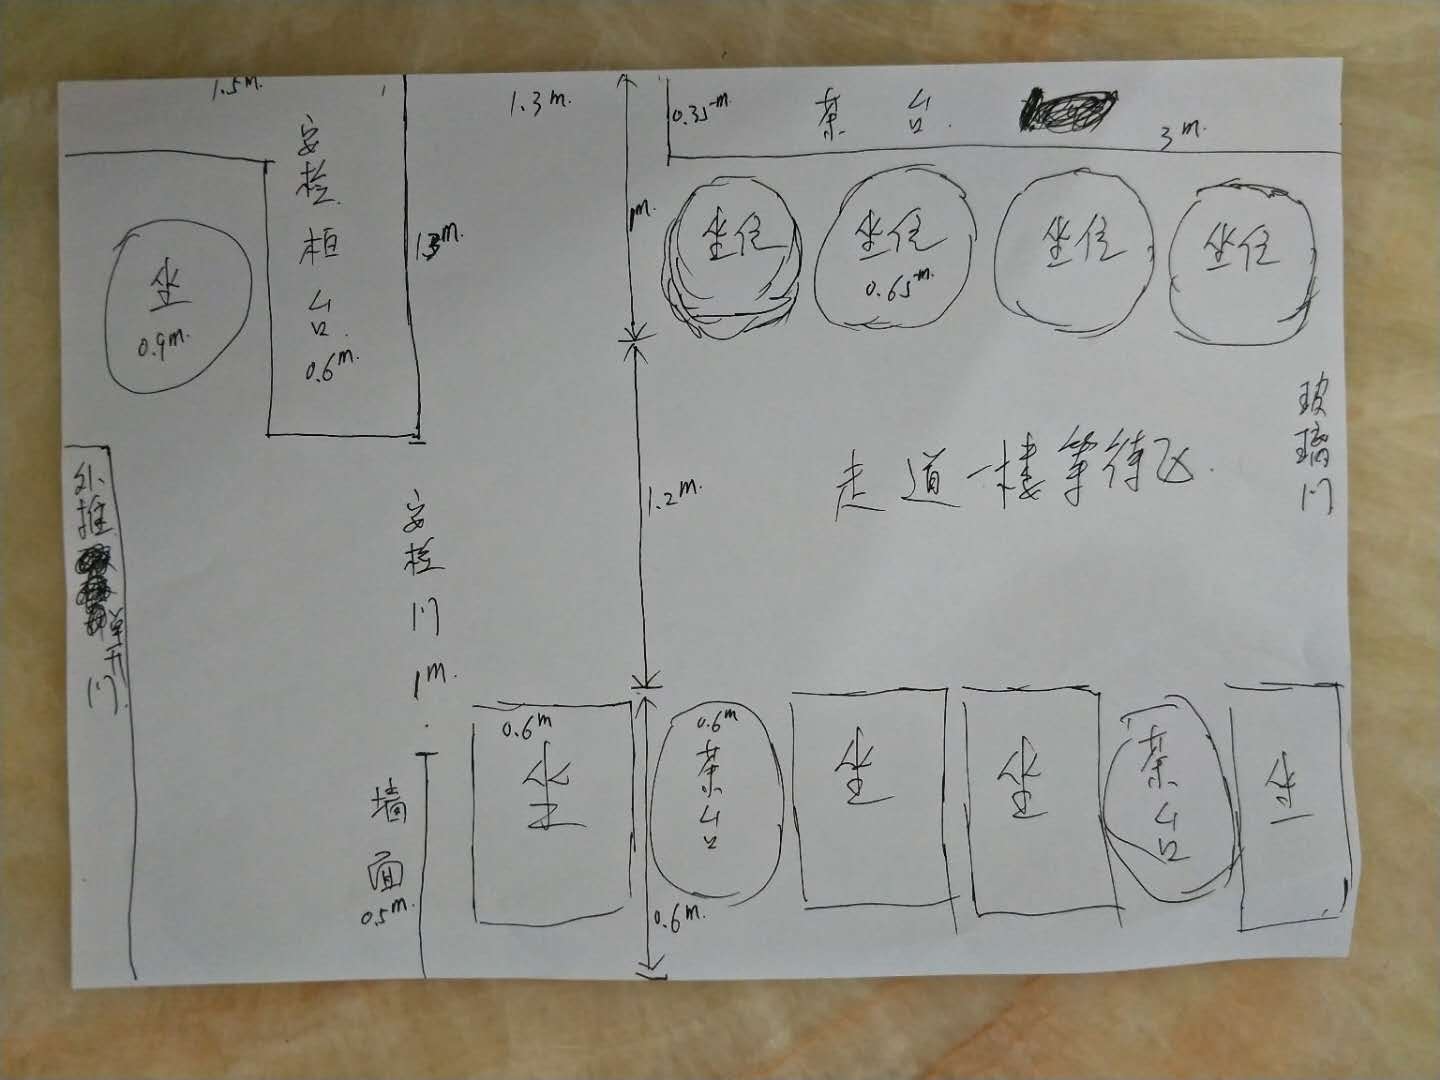 1.5m.
安检柜台.
0.6m.
1.3m.
1.3m.
1m.
0.35m.
茶台.
3m.
坐
0.9m.
坐位
坐位
0.65m.
坐位
坐位
玻璃门
走道一楼等待区.
1.2m.
外推
单开门
安检门
1m.
墙面
0.5m.
0.6m
坐
0.6m
茶台
0.6m.
坐
坐
茶台
坐